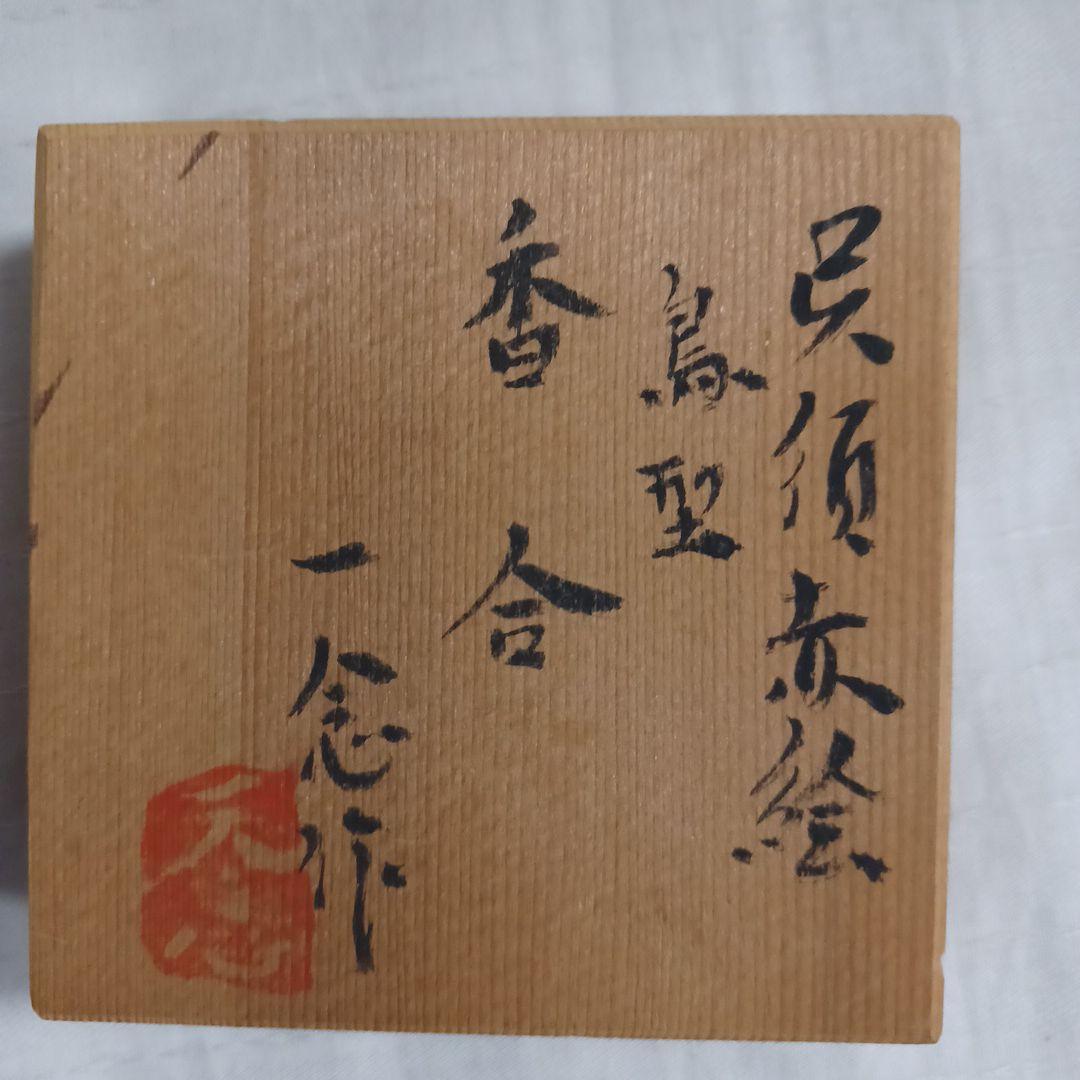 呉須赤絵
鳥型
香合
一念作